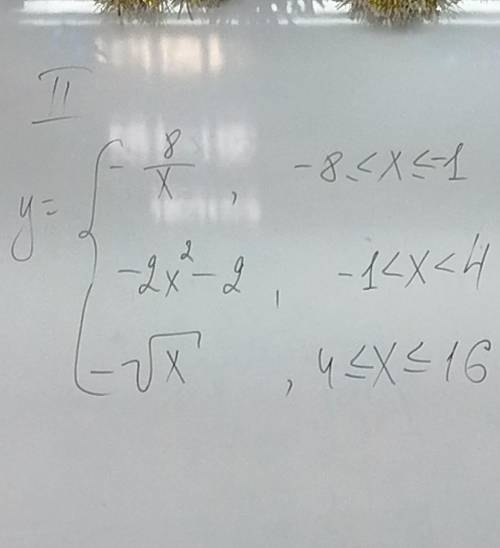 II
y = { - 8/x , -8 ≤ x ≤ -1
-2x² - 2 , -1 < x < 4
-√x , 4 ≤ x ≤ 16